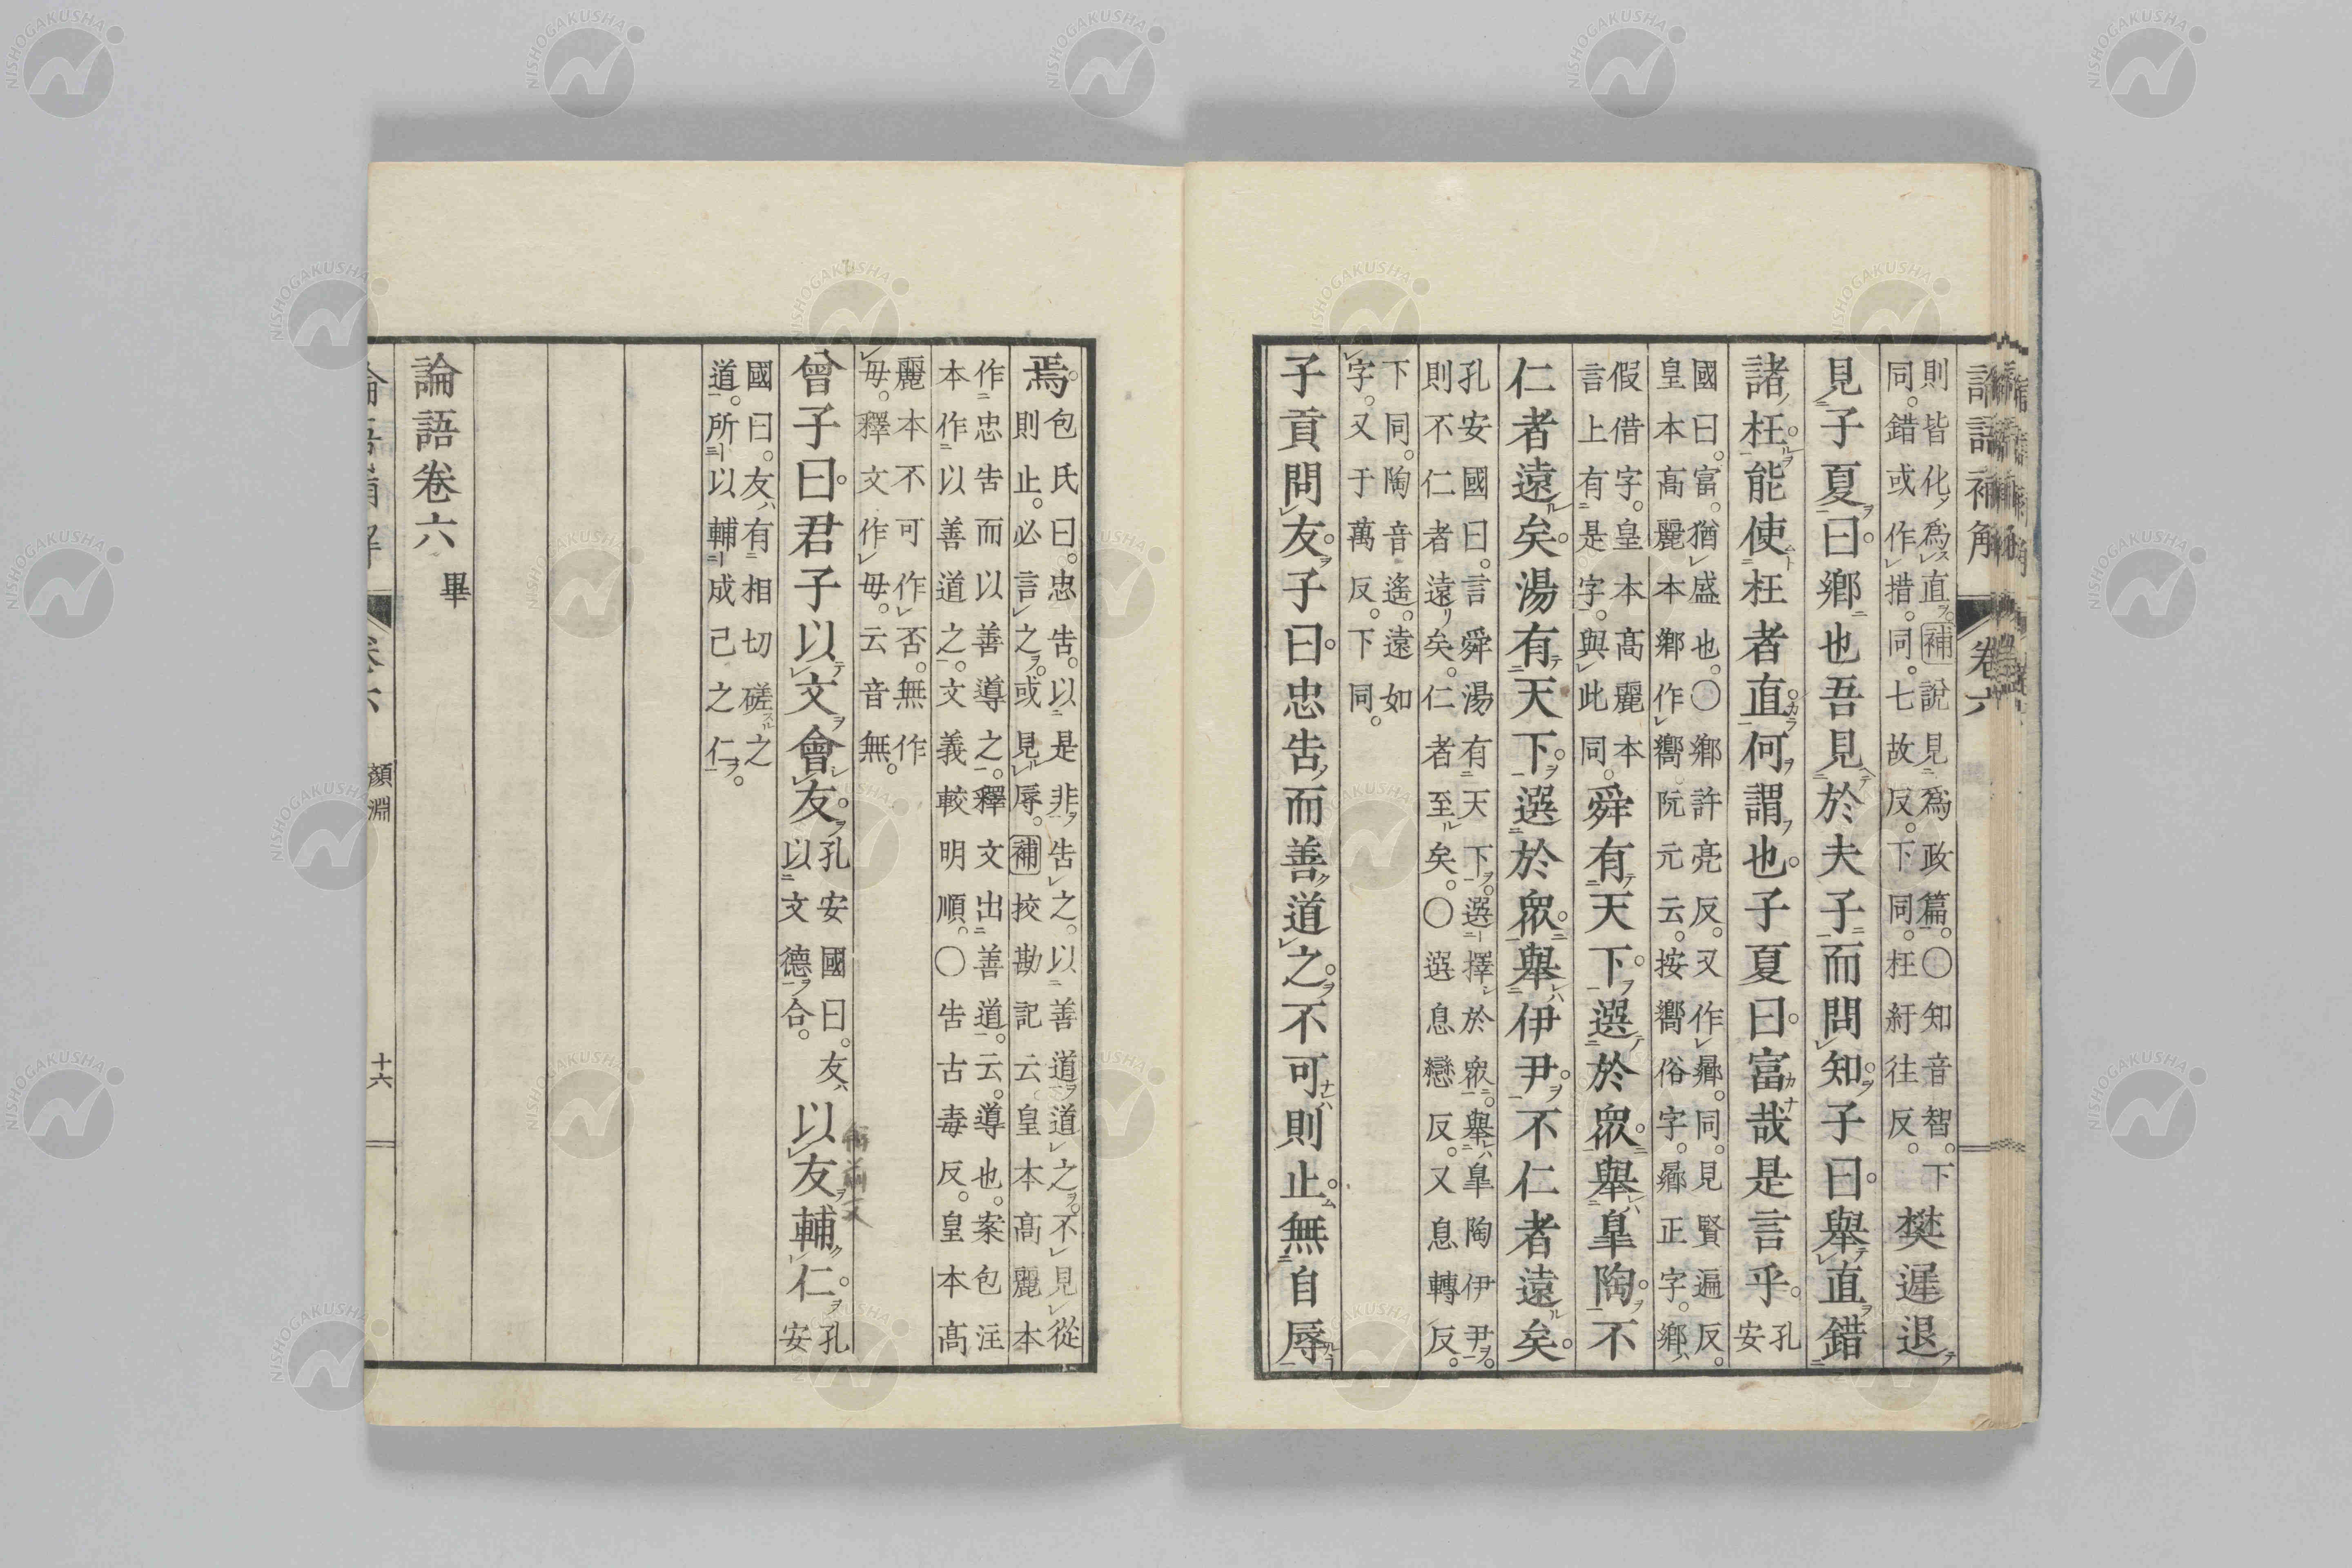 則皆化爲直補說見爲政篇○知音智下
同錯或作措同七故反下同枉紆往反
樊遲退
見子夏曰鄉也吾見於夫子而問知子曰舉直錯
諸枉能使枉者直何謂也子夏曰富哉是言乎
孔
安
國曰富猶盛也○鄉許亮反又作曏同見賢遍反
皇本高麗本鄉作嚮阮元云按嚮俗字曏正字鄉
假借字皇本高麗本
言上有是字與此同
舜有天下選於眾舉皐陶不
仁者遠矣湯有天下選於眾舉伊尹不仁者遠矣
孔安國曰言舜湯有天下選擇於眾舉皐陶伊尹
則不仁者遠矣仁者至矣○選息戀反又息轉反
下同陶音遙遠如
字又于萬反下同
子貢問友子曰忠告而善道之不可則止無自辱
焉
包氏曰忠告以是非告之以善道道之不見從
則止必言之或見辱補挍勘記云皇本高麗本
作忠告而以善導之釋文出善道云導也案包注
本作以善道之文義較明順○告古毒反皇本高
麗本不可作否無作
毋釋文作毋云音無
曾子曰君子以文會友
孔安國曰友
以文德合
以友輔仁
孔
安
國曰友有相切磋之
道所以輔成己之仁
論語卷六
畢
顏淵
十六
論語補解
卷六
NISHOGAKUSHA